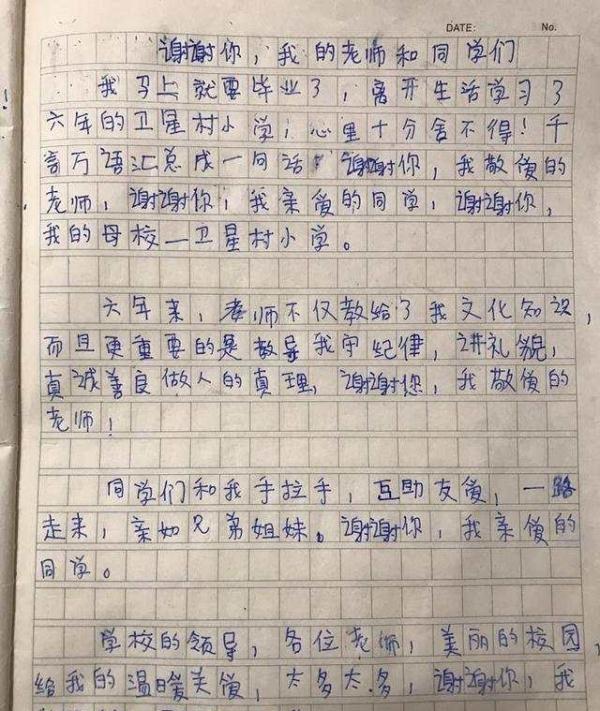 DATE: No.
谢谢你，我的老师和同学们
我马上就要毕业了，离开生活学习了
六年的卫星村小学，心里十分舍不得！千
言万语汇总成一句话：谢谢你，我敬爱的
老师，谢谢你，我亲爱的同学，谢谢你，
我的母校—卫星村小学。
六年来，老师不仅教给了我文化知识，
而且更重要的是教导我守纪律，讲礼貌，
真诚善良做人的真理，谢谢您，我敬爱的
老师！
同学们和我手拉手，互助友爱，一路
走来，亲如兄弟姐妹。谢谢你，我亲爱的
同学。
学校的领导，各位老师，美丽的校园，
给我的温暖关爱，太多太多，谢谢你，我